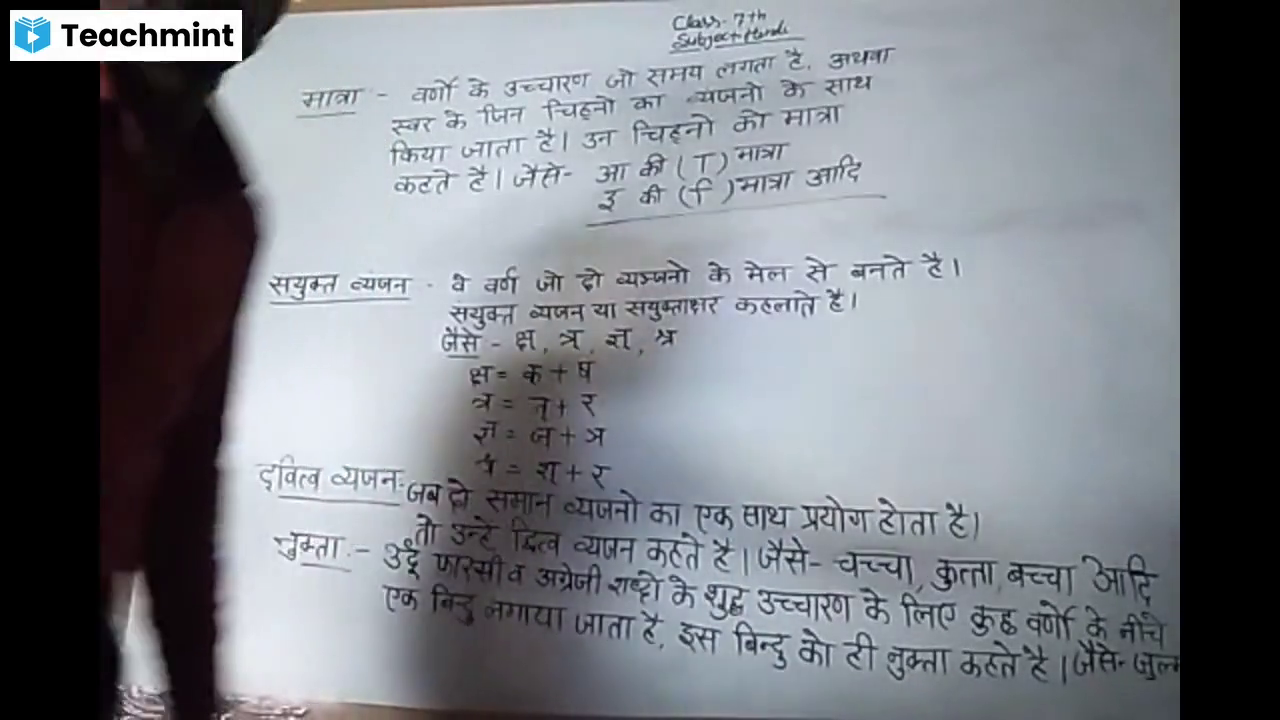 Teachmint
Class- 7th
Subject-Hindi
मात्रा :- वर्णो के उच्चारण जो समय लगता है, अथवा
स्वर के जिन चिहनो का व्यजनो के साथ
किया जाता है। उन चिहनो को मात्रा
कहते है। जैसे- आ की ( ा ) मात्रा
इ की ( ि ) मात्रा आदि
सयुक्त व्यंजन - वे वर्ण जो दो व्यञ्जनो के मेल से बनते है।
संयुक्त व्यजन या सयुक्ताक्षर कहलाते है।
जैसे - क्ष, त्र, ज्ञ, श्र
क्ष = क् + ष
त्र = त् + र
ज्ञ = ज् + ञ
श्र = श् + र
द्वित्व व्यजन:- जब दो समान व्यजनो का एक साथ प्रयोग होता है।
तो उन्हे द्वित्व व्यजन कहते है। जैसे- चच्चा, कुत्ता, बच्चा आदि
नुक्ता :- उर्दू फारसी व अग्रेजी शब्दो के शुद्ध उच्चारण के लिए कुछ वर्णो के नीचे
एक बिन्दु लगाया जाता है, इस बिन्दु को ही नुक्ता कहते है। जैसे-